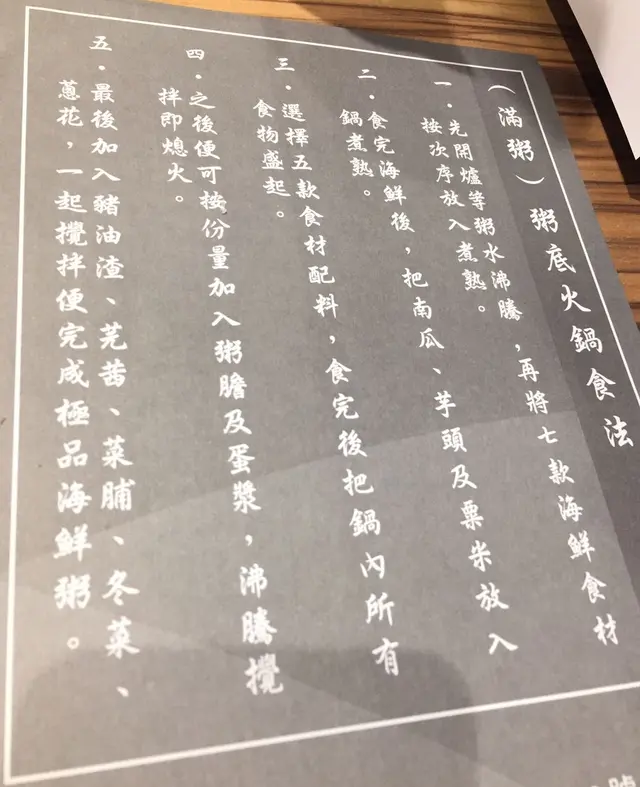 (滿粥)粥底火鍋食法
一.先開爐等粥水沸騰,再將七款海鮮食材
按次序放入煮熟。
二.食完海鮮後,把南瓜、芋頭及粟米放入
鍋煮熟。
三.選擇五款食材配料,食完後把鍋內所有
食物盛起。
四.之後便可按份量加入粥膽及蛋漿,沸騰攪
拌即熄火。
五.最後加入豬油渣、芫茜、菜脯、冬菜、
蔥花,一起攪拌便完成極品海鮮粥。